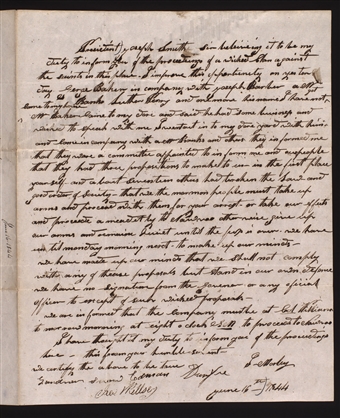 President Joseph Smith Sir believing it to be my
duty to inform you of the proceedings of a wicked Clan against
the saints in this place. I improve this opportunity on yesterday
George Baker in company with Joseph Barber a Mr
Banks Luther Perry and one more his name I have not,
Mr Baker came to my door and said he had some business and
wished to speak with me I went in to my door yard with him
and came in company with at his and others they informed me
that they were a committee appointed to inform me and my people
that they had three propositions to make to us in the first place
yourself and about seventeen others had broken the Law and
good order of Society that we the mormon people must take up
arms and proceed with them for your arrest or take our effects
and proceede immediately to Nauvoo otherwise give up
our arms and remain quiet until the fuss is over we have
until monday morning next to make up our minds
we have made up our minds that we shall not comply
with any of these proposals but stand in our own defence
we have no signature from the Governor or any official
officer to accept of such wicked proposals
we are informed that the Company must be at Col Williams
tomorrow morning at eight o clock to proceed to Nauvoo
I have thought it my duty to inform you of the proceedings
here this from your humble servt
we certify the above to be true
I. Morley
Gardner Snow
Edmund Durfee
June 16th 1844